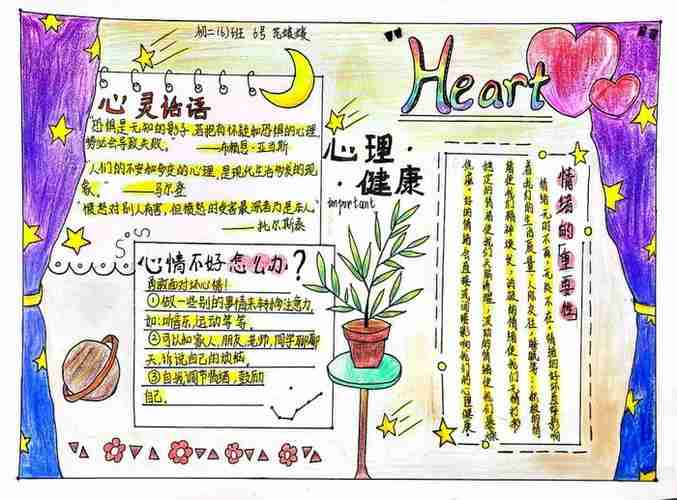 初二(6)班 6号
"Heart"
心灵话语
"恐惧是无知的影子,若抱有怀疑和恐惧的心理
势必会导致失败。" ——布赖恩·亚当斯
人们的不安和多变的心理,是现代生活多发的现
象。" ——马尔登
"愤怒对别人有害,但愤怒时受害最深者乃是本人"
——托尔斯泰
心理·
·健康
important
心情不好怎么办?
勇敢面对坏心情!
①做一些别的事情来转移注意力,
如:听音乐,运动等等。
②可以和家人,朋友,老师,同学聊聊
天,诉说自己的烦恼。
③自我调节情绪,鼓励
自己。
情绪的重要性
情绪无时不再,无处不在,情绪的好坏直接影响
着我们的生活质量,人际交往,睡眠等;积极的情
绪使我们精神焕发,消极的情绪使我们无精打采;
的情绪使我们头脑清醒,的情绪使我们
焦虑。好的情绪会直接或间接影响我们的心理健康。